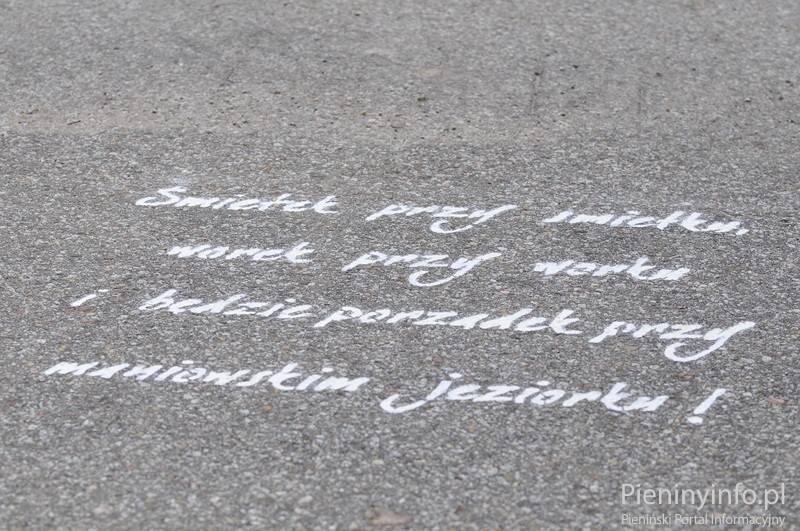 Śmietek przy śmietku,
worek przy worku
i będzie porządek przy
maniowskim jeziorku!
Pieninyinfo.pl
Pieniński Portal Informacyjny